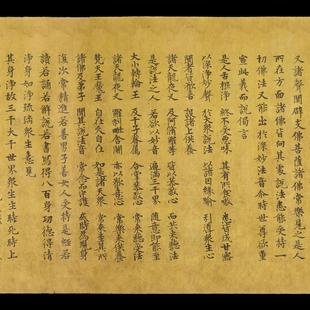 又諸聲聞辟支佛菩薩諸佛常樂見之是人
所在方面諸佛皆向其處說法悉能受持一
切佛法又能出於深妙法音尒時世尊欲重
宣此義而說偈言
是人舌根淨 終不受惡味 其有所食噉 悉皆成甘露
以深淨妙聲 於大衆說法 以諸因緣喻 引導衆生心
聞者皆歡喜 設諸上供養
諸天龍夜叉 及阿脩羅等 皆以恭敬心 而共來聽法
是說法之人 若欲以妙音 遍滿三千界 隨意即能至
大小轉輪王 及千子眷屬 合掌恭敬心 常來聽受法
諸天龍夜叉 羅剎毗舍闍 亦以歡喜心 常樂來供養
梵天王魔王 自在大自在 如是諸天衆 常來至其所
諸佛及弟子 聞其說法音 常念而守護 或時為現身
復次常精進若善男子善女人受持是經若
讀若誦若解說若書寫得八百身功德得清
淨身如淨琉璃衆生憙見
其身淨故三千大千世界衆生生時死時上